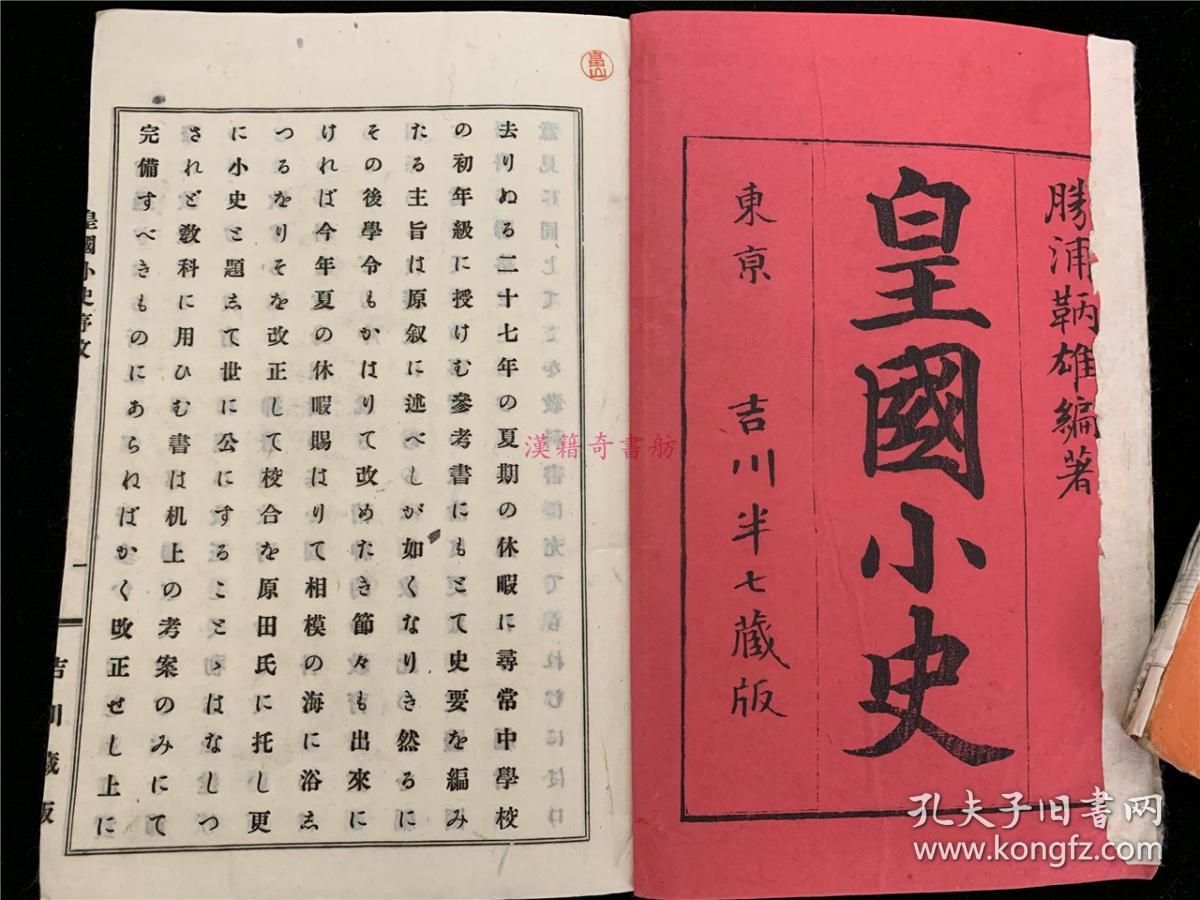 勝浦鞆雄編著
皇國小史
東京 吉川半七蔵版
去りぬる二十七年の夏期の休暇に尋常中學校
の初年級に授けむ參考書にもとて史要を編み
たる主旨は原叙に述べしが如くなりき然るに
その後學令もかはりて改めたき節々も出來に
ければ今年夏の休暇賜はりて相模の海に浴ゑ
つるをりそを改正して校合を原田氏に托し更
に小史と題ゑて世に公にすることゝはなしつ
されど敎科に用ひむ書は机上の考案のみにて
完備すべきものにあらねばかく改正せし上に
皇國小史序文
一
吉川蔵版
漢籍奇書舫
孔夫子旧书网
www.kongfz.com